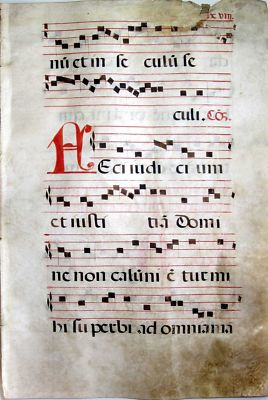 nū et in se culū se
culi.
FEci iudi ci um
et iusti tiā Domi
ne non calūni ē tur mi
hi su perbi ad omnia ma